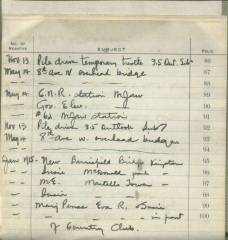 NO. OF NEGATIVE SUBJECT FOLIO
Nov 13. Pile driver temporary trestle 3.5 Dist. Sub 86
May 14 8th ave N overhead bridge 87
88
May 14 C.N.R. station M. Jaw 89
Gov. Elev. 90
" 63 M. Jaw station 91
Nov 13 Pile driver 3.5 Outlook Sub 92
May 14 8th ave W. overhead bridge 93
94
Jany 1915 New Barriefield Bridge Kingston 95
Inside McDonell " 96
M.E. Martello Tower " 97
Bessie 98
Mary Pense Eva R. Bessie 99
" " " in front 100
of Country Club.